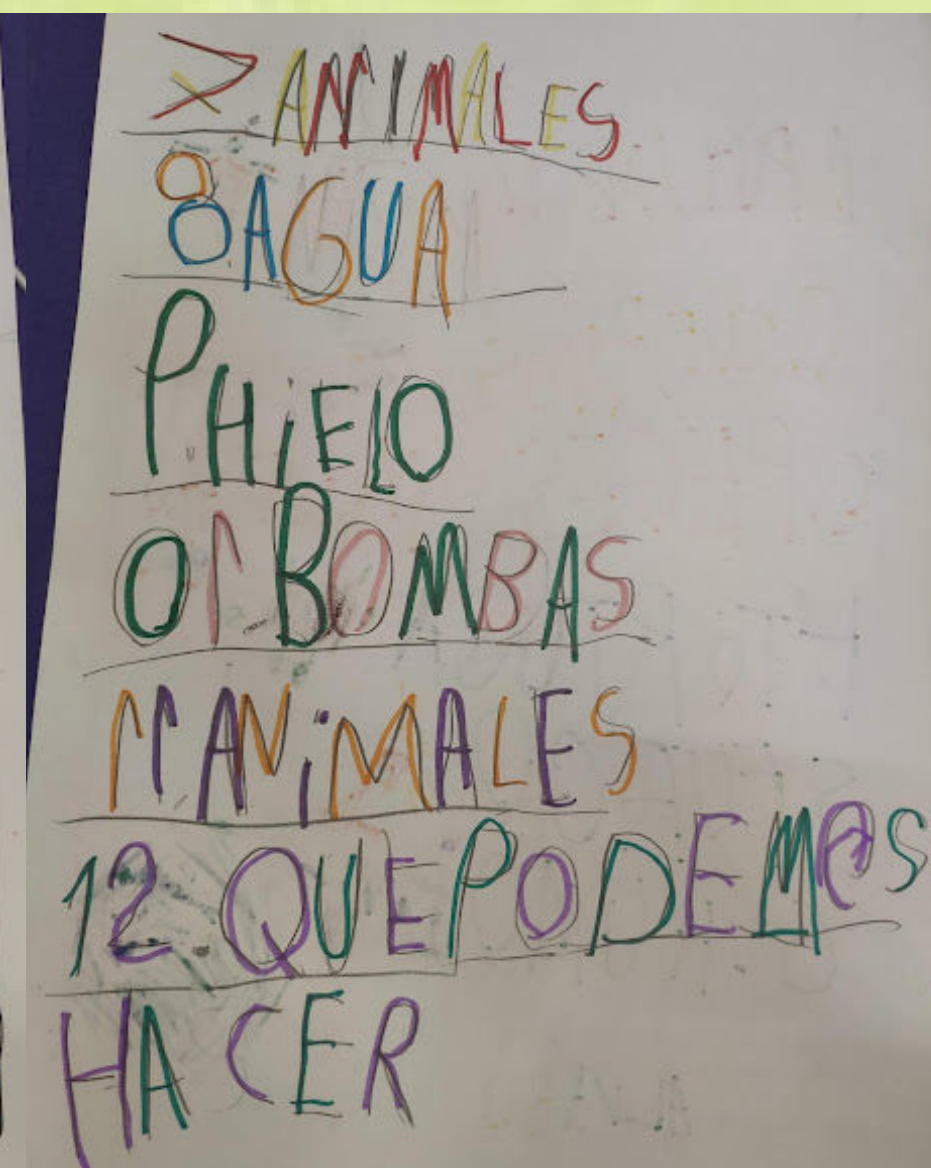 7 ANIMALES
8 AGUA
9 HiELO
01 BOMBAS
11 ANiMALES
12. QUE PODEM@S
HACER